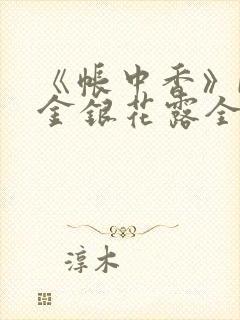 《帐中香》
金银花露全
淳木